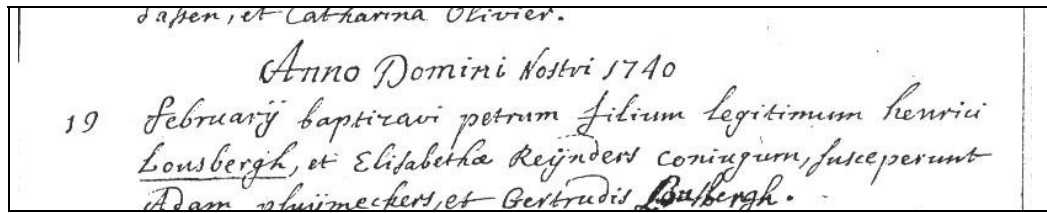 dassen, et Catharina Olivier.
Anno Domini Nostri 1740
19 februarij baptizavi petrum filium legitimum henrici
Lousbergh, et Elisabethæ Reijnders coniugum, susceperunt
Adam pluijmeckers, et Gertrudis Lousbergh.